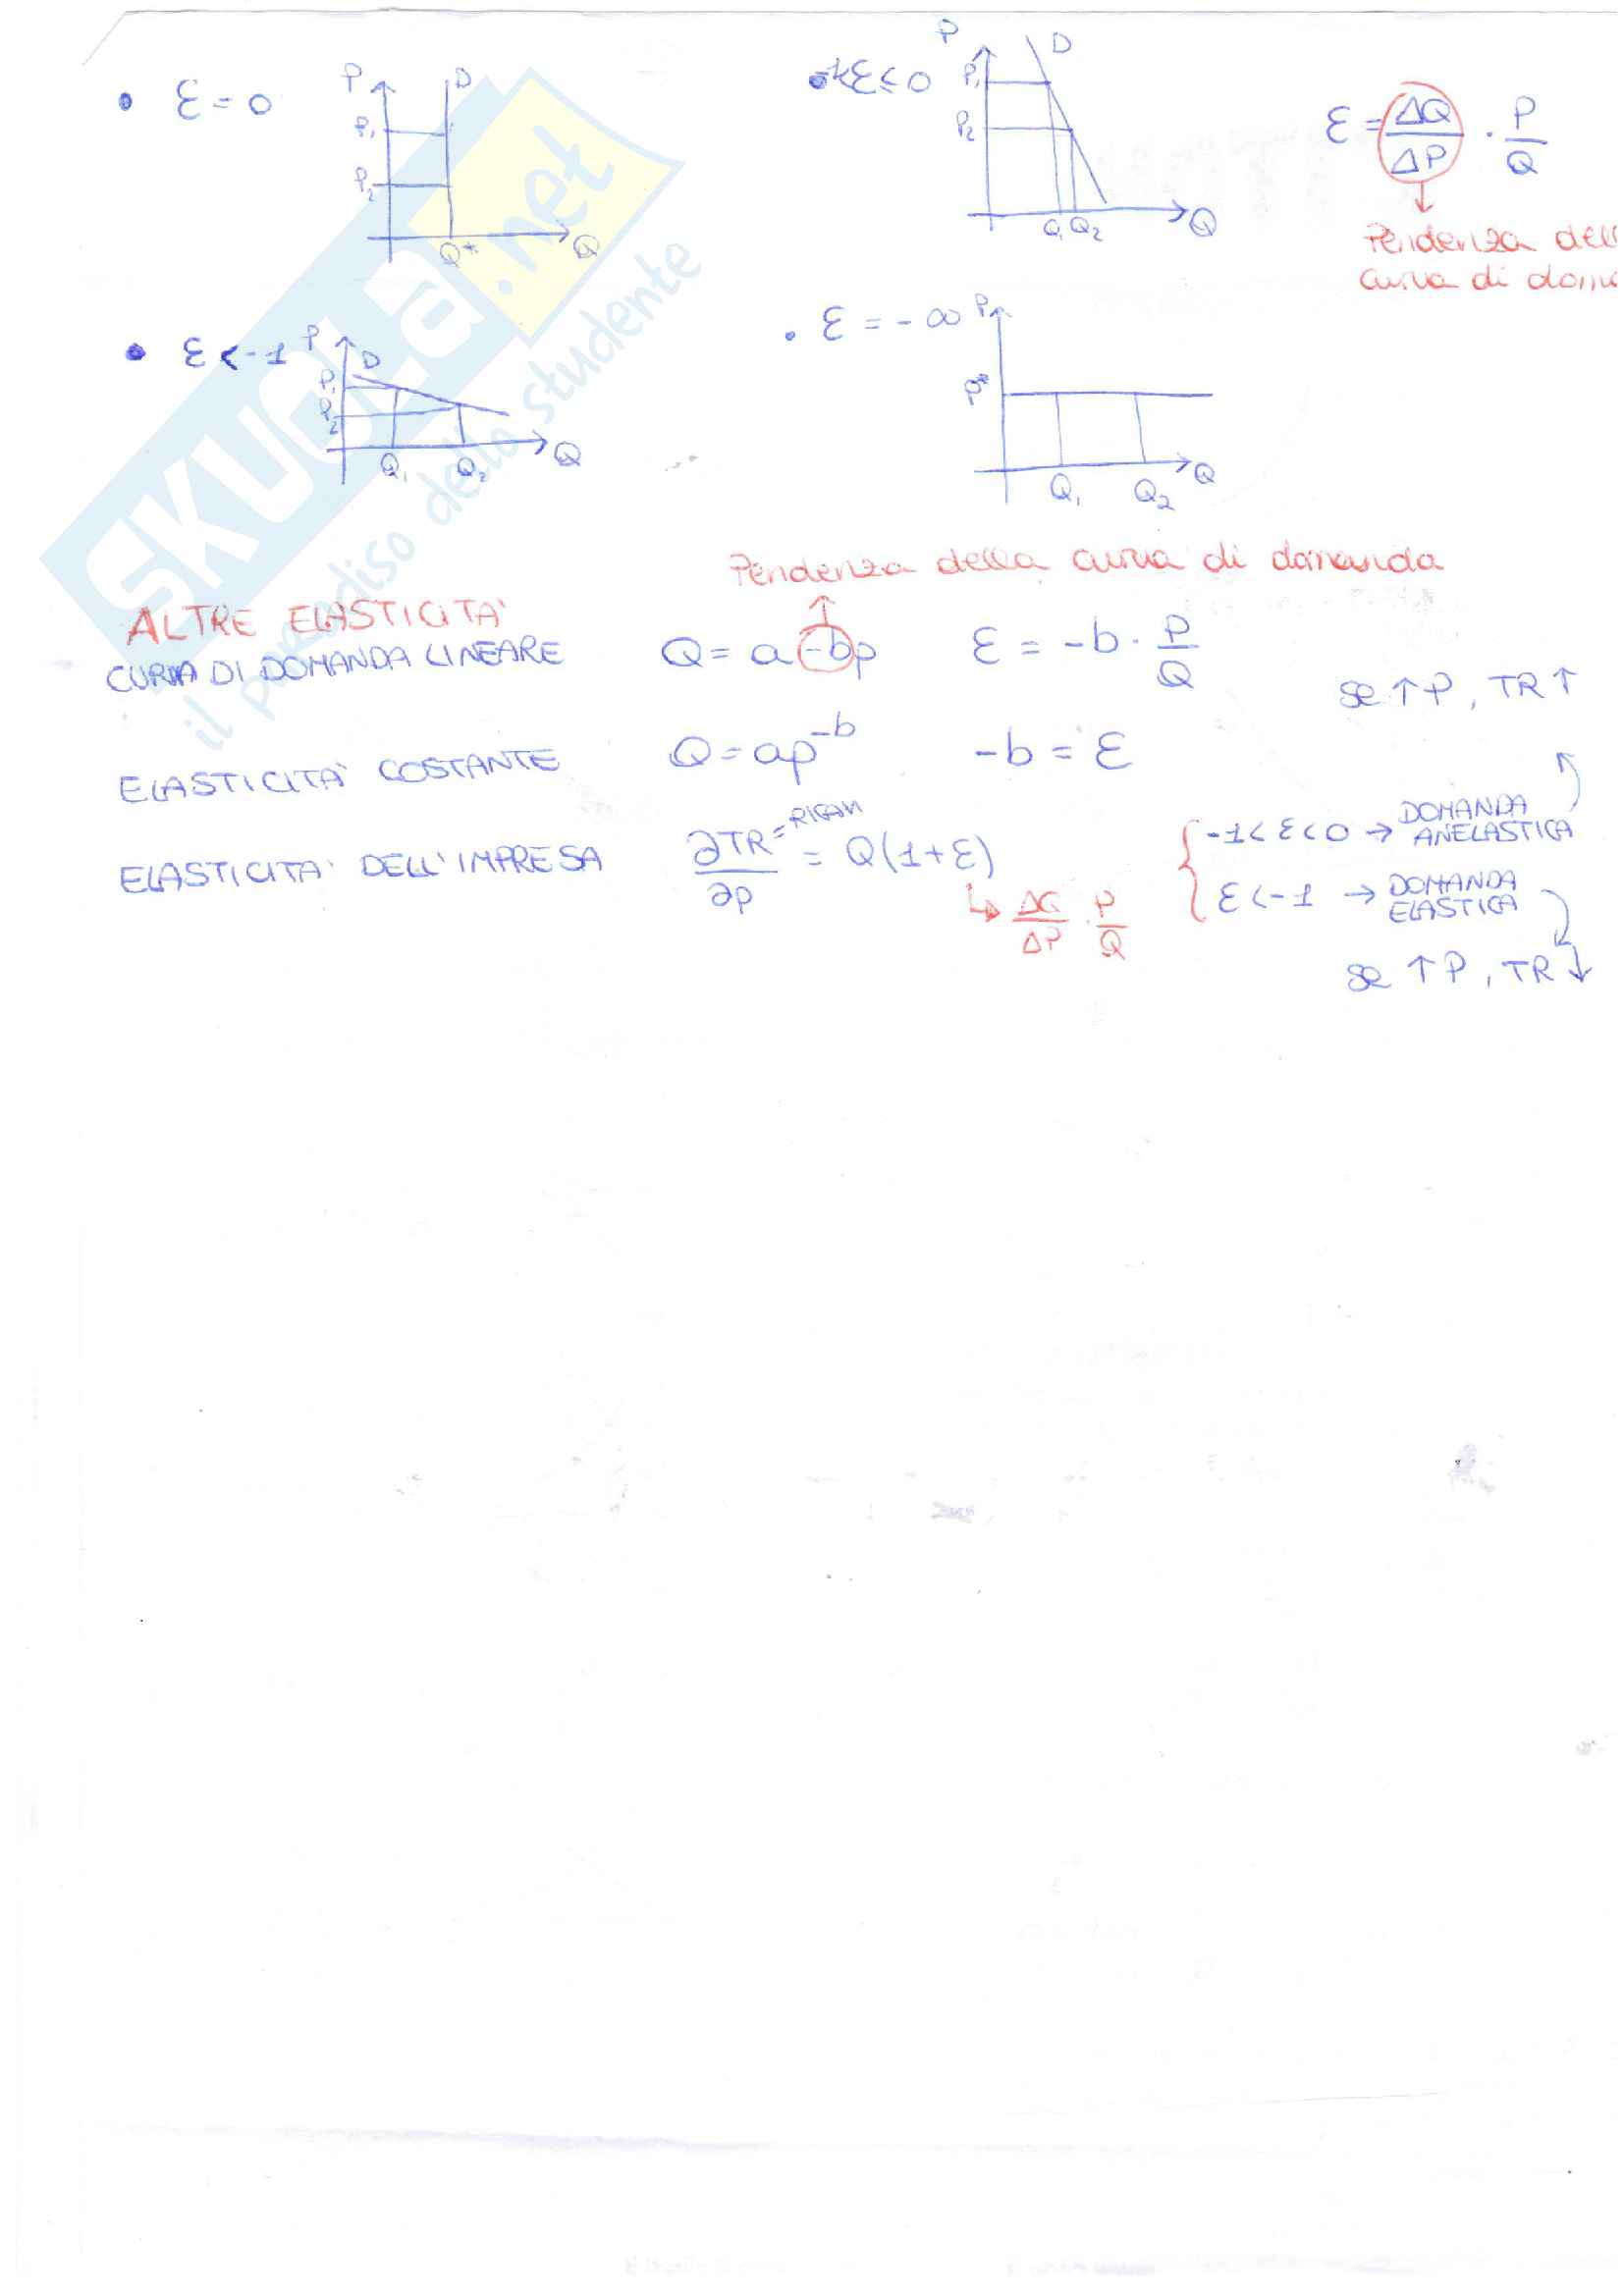 • ε = 0
P
D
P₁
P₂
Q*
Q
-1<ε<0
P
D
P₁
P₂
Q₁ Q₂
Q
ε = ΔQ/ΔP · P/Q
Pendenza
curva di
• ε < -1
P
D
P₁
P₂
Q₁ Q₂
Q
• ε = -∞
P
P*
Q₁ Q₂
Q
SKUOLA.net
il paradiso dello studente
Pendenza della curva di domanda
ALTRE ELASTICITA'
CURVA DI DOMANDA LINEARE Q = a - bp ε = -b · P/Q
se ↑P, TR↑
ELASTICITA' COSTANTE Q = ap⁻ᵇ -b = ε
ELASTICITA' DELL'IMPRESA ∂TR/∂p = Q(1+ε)
↳ ΔQ/ΔP · P/Q
-1<ε<0 → DOMANDA ANELASTICA
ε<-1 → DOMANDA ELASTICA
se ↑P, TR↓